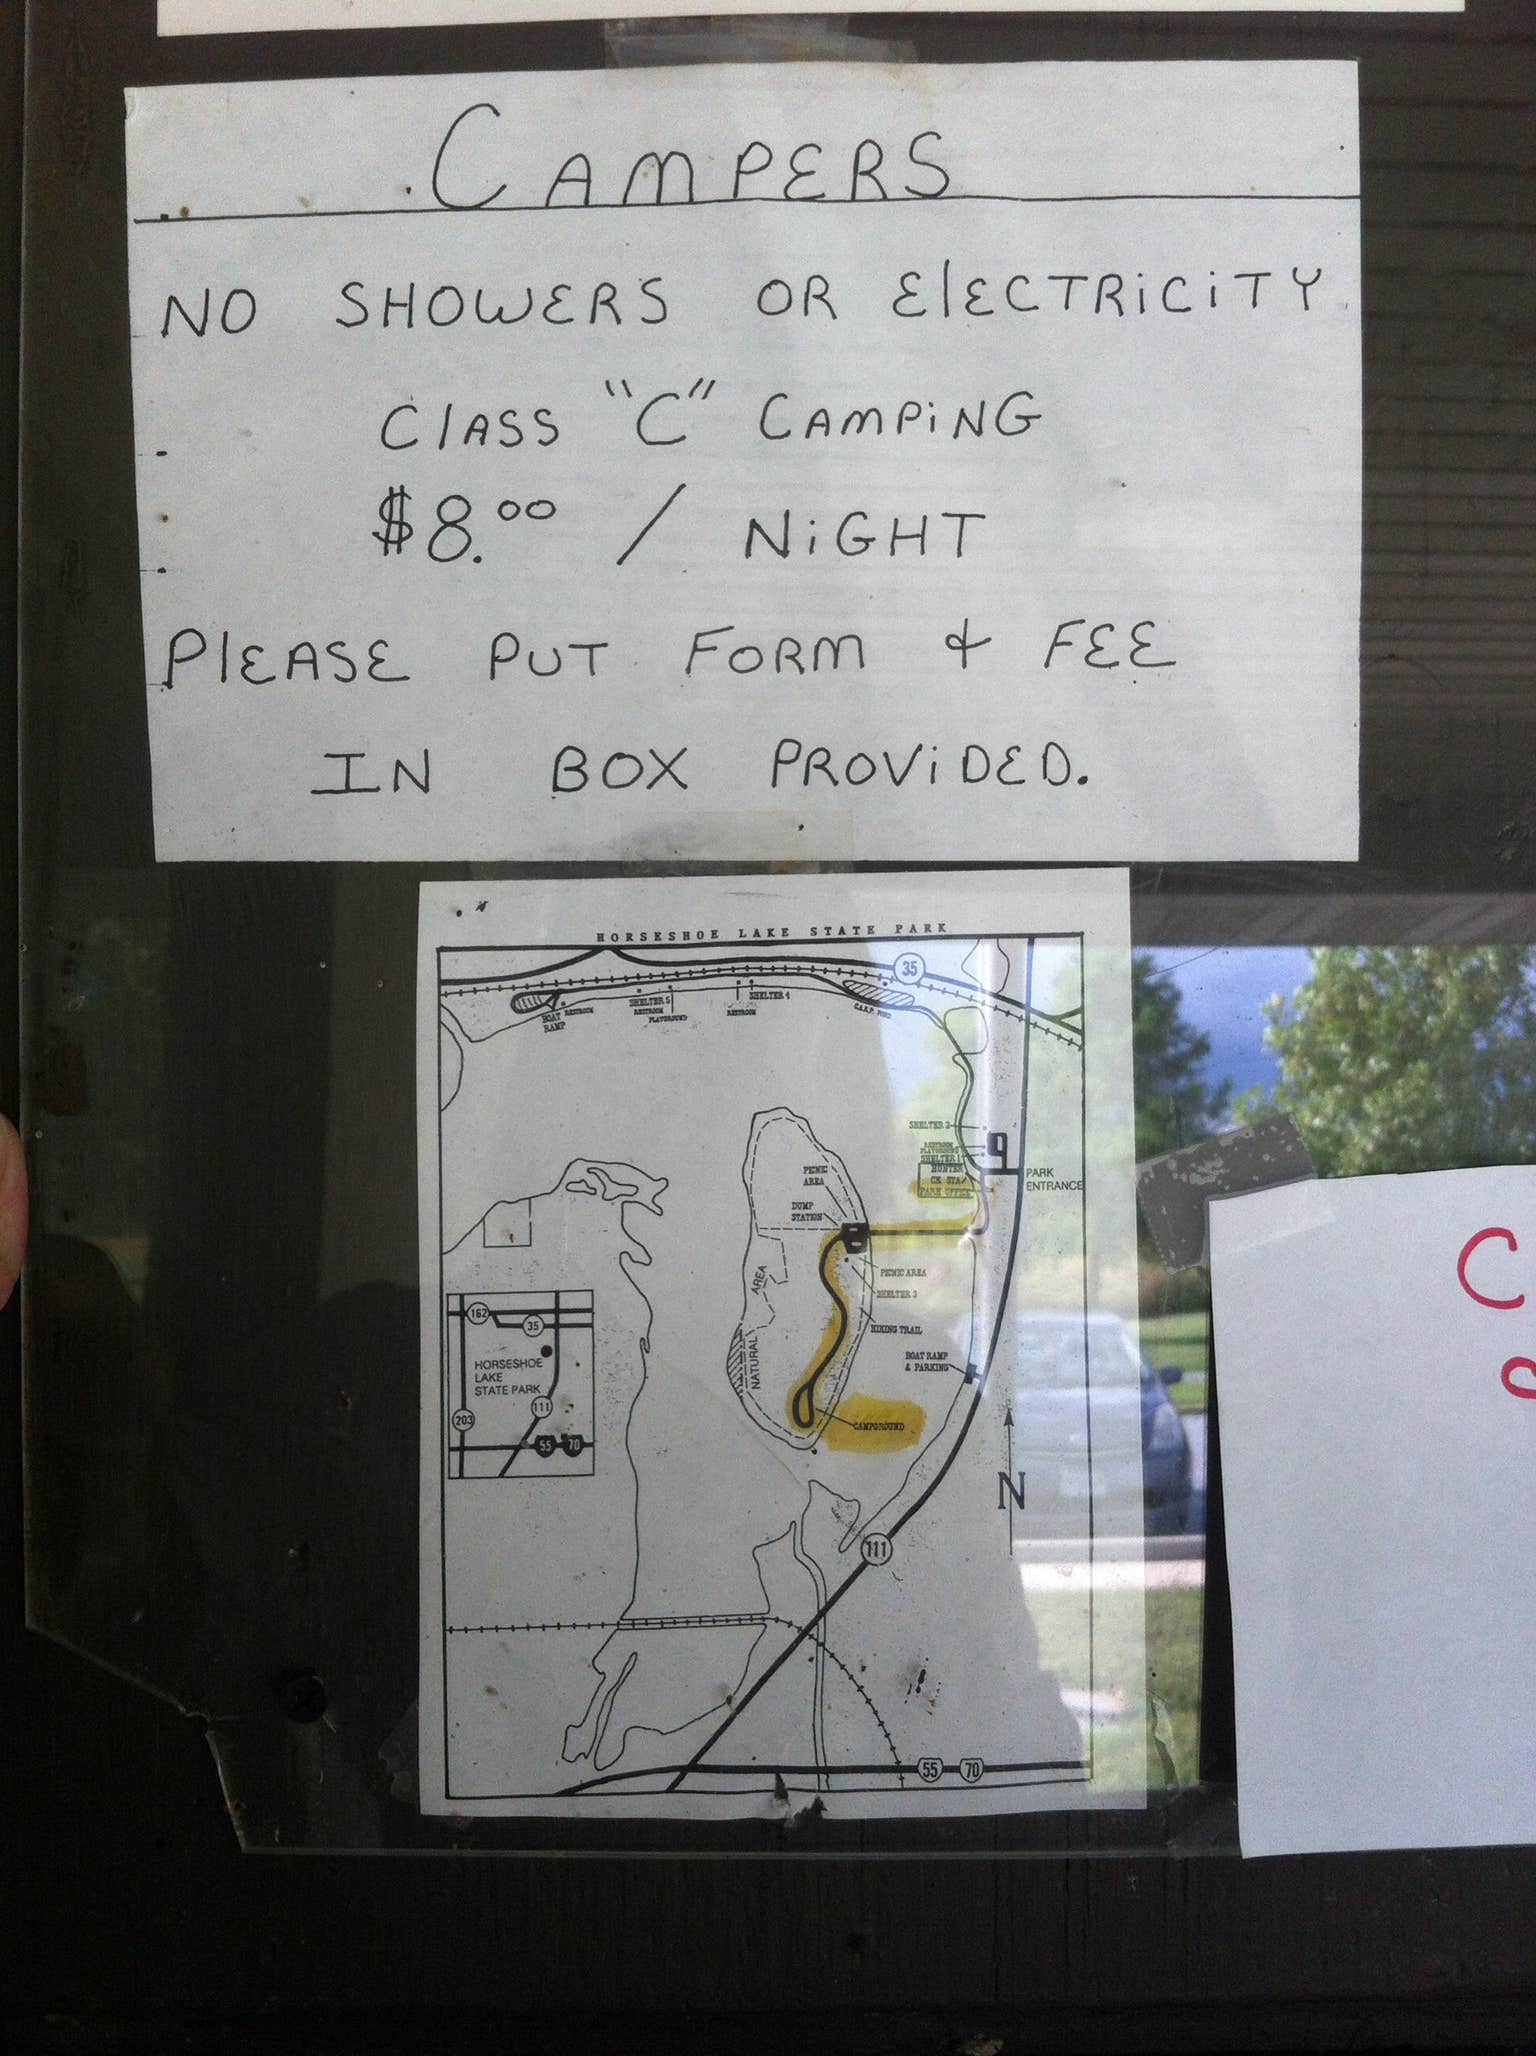 CAMPERS
NO SHOWERS OR ElECTRiCiTY
ClASS "C" CAMPiNG
$8.00 / NiGHT
PlEASE PUT FORM & FEE
IN BOX PROViDED.
HORSESHOE LAKE STATE PARK
35
BOAT RAMP
RESTROOM
SHELTER 5
RESTROOM
PLAYGROUND
RESTROOM
SHELTER 4
SHELTER 2
RESTROOM
PLAYGROUND
SHELTER 1
HUNTER
CK STA
PARK OFFICE
PARK
ENTRANCE
PICNIC
AREA
DUMP
STATION
PICNIC AREA
SHELTER 3
HIKING TRAIL
NATURAL AREA
BOAT RAMP
& PARKING
CAMPGROUND
162
35
HORSESHOE
LAKE
STATE PARK
111
203
55 70
N
111
55 70
C